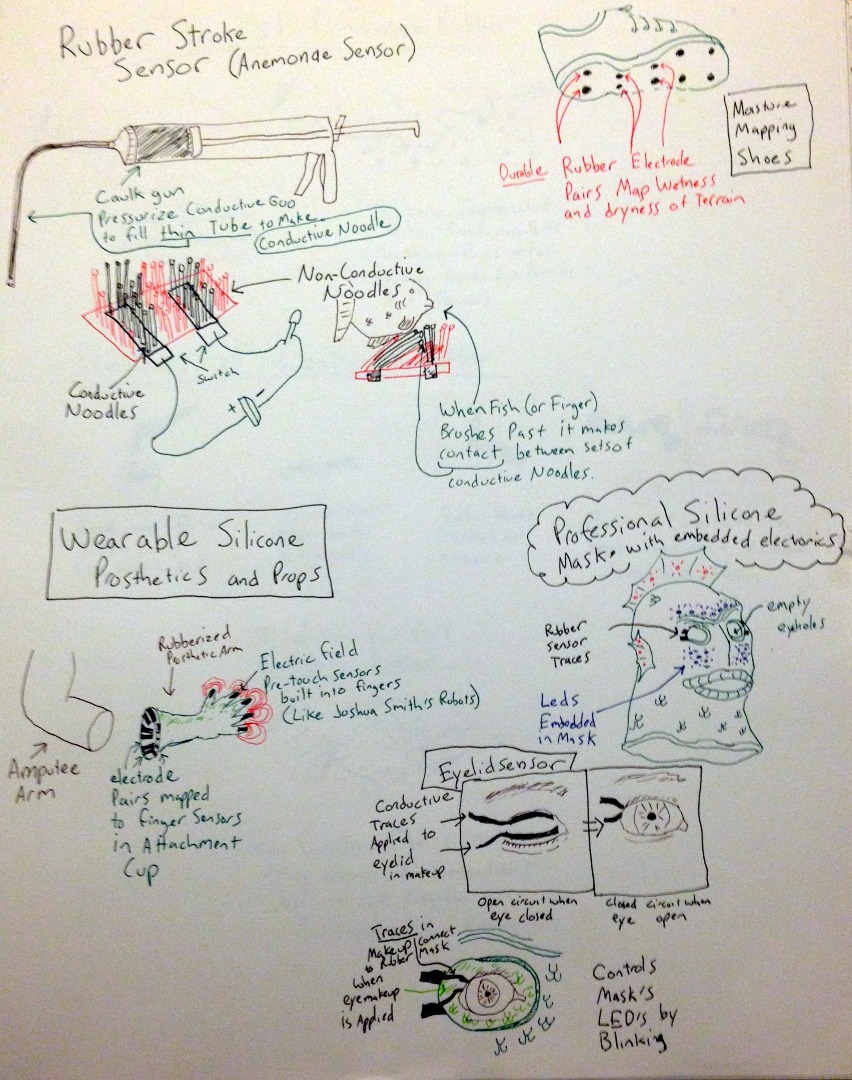 Rubber Stroke
Sensor (Anemonae Sensor)
Caulk gun
Pressurize Conductive Goo
to fill thin Tube to Make
Conductive Noodle
Moisture
Mapping
Shoes
Durable Rubber Electrode
Pairs Map Wetness
and dryness of Terrain
Non-Conductive
Noodles
Switch
Conductive
Noodles
+ -
When Fish (or Finger)
Brushes Past it makes
contact between sets of
conductive Noodles.
Wearable Silicone
Prosthetics and Props
Professional Silicone
Masks with embedded electronics
Rubberized
Porsthetic Arm
Electric field
Pre-touch sensors
built into fingers
(Like Joshua Smith's Robots)
Amputee
Arm
electrode
Pairs mapped
to finger Sensors
in Attachment
Cup
empty
eyeholes
Rubber
sensor
Traces
Leds
Embedded
in Mask
Eyelid sensor
Conductive
Traces
Applied to
eyelid
in makeup
Open circuit when
eye closed
Closed circuit when
eye open
Traces in
Makeup connect
to Rubber Mask
when
eyemakeup
is Applied
Controls
Mask's
LED's by
Blinking